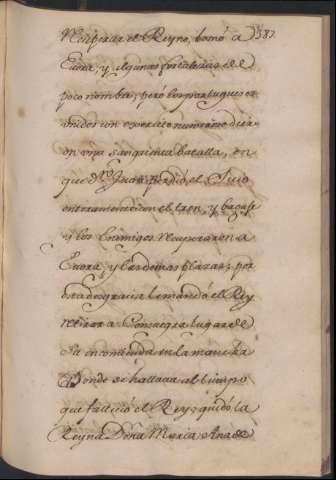 Recuperar el Reyno, tomó a 587
Euora, y algunas fortalezas de
poco nombre; pero los portugueses
unidos un exercito numeroso dier-
on una sangrienta batalla, en
que Dn. Juan perdió el Sitio
enteramente con el tren, y bagaje
y los Enemigos recuperaron a
Euora, y las demas plazas; por
esta desgracia le mandó el Rey
retirar a Consuegra lugar de
su encomienda en la mancha
Donde se hallaua al tiempo
que fallició el Rey; quidó la
Reyna Doña Maria Ana de